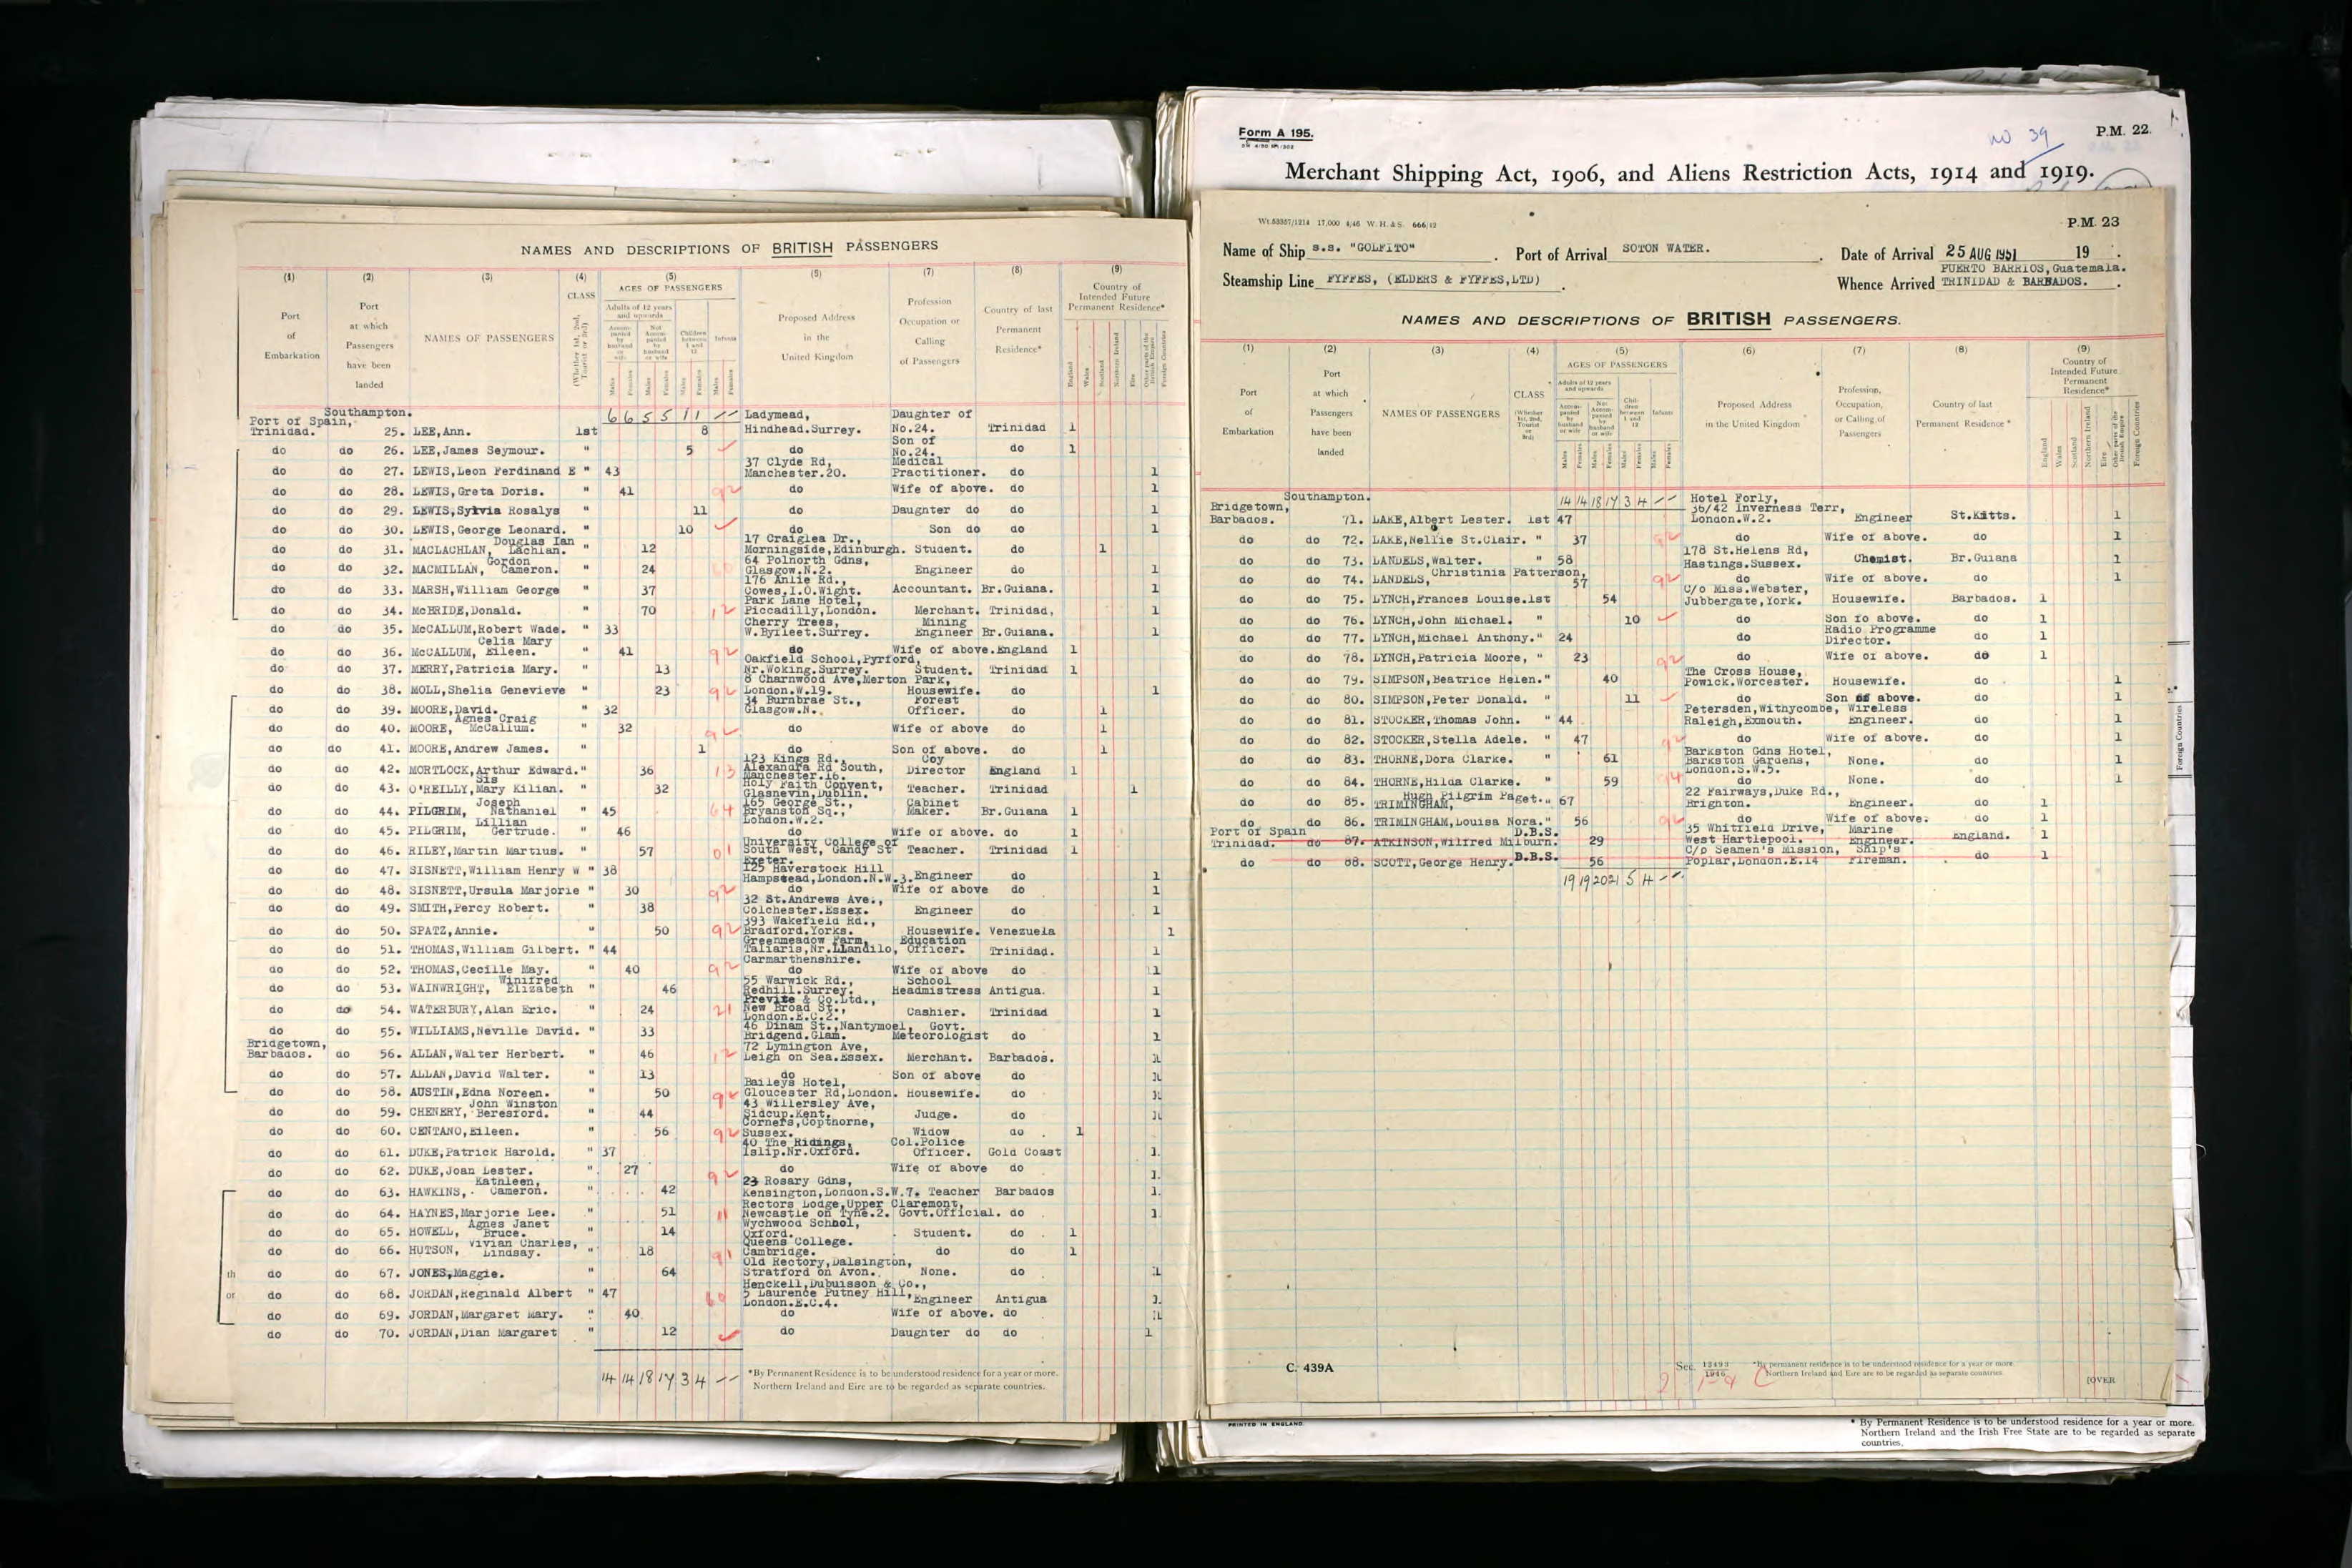 NAMES AND DESCRIPTIONS OF BRITISH PASSENGERS
(1) (2) (3) (4) (5) (6) (7) (8) (9)
Port of Embarkation
Port at which Passengers have been landed
NAMES OF PASSENGERS
CLASS (Whether 1st, 2nd, Tourist or 3rd)
AGES OF PASSENGERS
Adults of 12 years and upwards
Accompanied by husband or wife
Not Accompanied by husband or wife
Children between 1 and 12
Infants
Males Females Males Females Males Females Males Females
Proposed Address in the United Kingdom
Profession Occupation or Calling of Passengers
Country of last Permanent Residence*
Country of Intended Future Permanent Residence*
England Wales Scotland Northern Ireland Eire Other parts of the British Empire Foreign Countries
Southampton. 6 6 5 5 1 1 - -
Port of Spain, Trinidad. 25. LEE,Ann. 1st 8 Ladymead, Hindhead.Surrey. Daughter of No.24. Trinidad 1
do do 26. LEE,James Seymour. " 5 do Son of No.24. do 1
do do 27. LEWIS,Leon Ferdinand E " 43 37 Clyde Rd, Manchester.20. Medical Practitioner. do 1
do do 28. LEWIS,Greta Doris. " 41 do Wife of above. do 1
do do 29. LEWIS,Sylvia Rosalys " 11 do Daughter do do 1
do do 30. LEWIS,George Leonard. " 10 do Son do do 1
do do 31. MACLACHLAN, Douglas Ian Lachlan. " 12 17 Craiglea Dr., Morningside,Edinburgh. Student. do 1
do do 32. MACMILLAN, Gordon Cameron. " 24 64 Polnorth Gdns, Glasgow.N.2. Engineer do 1
do do 33. MARSH,William George " 37 176 Anlie Rd., Cowes.I.O.Wight. Accountant. Br.Guiana. 1
do do 34. McBRIDE,Donald. " 70 Park Lane Hotel, Piccadilly,London. Merchant. Trinidad, 1
do do 35. McCALLUM,Robert Wade. " 33 Cherry Trees, W.Byfleet.Surrey. Mining Engineer Br.Guiana. 1
do do 36. McCALLUM, Celia Mary Eileen. " 41 do Wife of above.England 1
do do 37. MERRY,Patricia Mary. " 13 Oakfield School,Pyrford, Nr.Woking.Surrey. Student. Trinidad 1
do do 38. MOLL,Shelia Genevieve " 23 8 Charnwood Ave,Merton Park, London.W.19. Housewife. do 1
do do 39. MOORE,David. " 32 34 Burnbrae St., Glasgow.N. Forest Officer. do 1
do do 40. MOORE, Agnes Craig McCallum. " 32 do Wife of above do 1
do do 41. MOORE,Andrew James. " 1 do Son of above. do 1
do do 42. MORTLOCK,Arthur Edward. " 36 123 Kings Rd., Alexandra Rd South, Manchester.16. Coy Director England 1
do do 43. O'REILLY, Sis Mary Kilian. " 32 Holy Faith Convent, Glasnevin,Dublin. Teacher. Trinidad 1
do do 44. PILGRIM, Joseph Nathaniel " 45 165 George St., Bryanston Sq., London.W.2. Cabinet Maker. Br.Guiana 1
do do 45. PILGRIM, Lillian Gertrude. " 46 do Wife of above. do 1
do do 46. RILEY,Martin Martius. " 57 University College of South West, Gandy St Exeter. Teacher. Trinidad 1
do do 47. SISNETT,William Henry W " 38 125 Haverstock Hill Hampstead,London.N.W.3. Engineer do 1
do do 48. SISNETT,Ursula Marjorie " 30 do Wife of above do 1
do do 49. SMITH,Percy Robert. " 38 32 St.Andrews Ave., Colchester.Essex. Engineer do 1
do do 50. SPATZ,Annie. " 50 393 Wakefield Rd., Bradford.Yorks. Housewife. Venezuela 1
do do 51. THOMAS,William Gilbert. " 44 Greenmeadow Farm, Taliaris,Nr.LLandilo, Carmarthenshire. Education Officer. Trinidad. 1
do do 52. THOMAS,Cecille May. " 40 do Wife of above do 1
do do 53. WAINWRIGHT, Winifred Elizabeth " 46 55 Warwick Rd., Redhill.Surrey. School Headmistress Antigua. 1
do do 54. WATERBURY,Alan Eric. " 24 Previte & Co.Ltd., New Broad St., London.E.C.2. Cashier. Trinidad 1
do do 55. WILLIAMS,Neville David. " 33 46 Dinam St.,Nantymoel, Bridgend.Glam. Govt. Meteorologist do 1
Bridgetown, Barbados. do 56. ALLAN,Walter Herbert. " 46 72 Lymington Ave, Leigh on Sea.Essex. Merchant. Barbados. 1
do do 57. ALLAN,David Walter. " 13 do Son of above do 1
do do 58. AUSTIN,Edna Noreen. " 50 Baileys Hotel, Gloucester Rd,London. Housewife. do 1
do do 59. CHENERY, John Winston Beresford. " 44 43 Willersley Ave, Sidcup.Kent. Judge. do 1
do do 60. CENTANO,Eileen. " 56 Corners,Copthorne, Sussex. Widow do 1
do do 61. DUKE,Patrick Harold. " 37 40 The Ridings, Islip.Nr.Oxford. Col.Police Officer. Gold Coast 1.
do do 62. DUKE,Joan Lester. " 27 do Wife of above do 1.
do do 63. HAWKINS, Kathleen, Cameron. " 42 23 Rosary Gdns, Kensington,London.S.W.7. Teacher Barbados 1.
do do 64. HAYNES,Marjorie Lee. " 51 Rectors Lodge,Upper Claremont, Newcastle on Tyne.2. Govt.Official. do 1
do do 65. HOWELL, Agnes Janet Bruce. " 14 Wychwood School, Oxford. Student. do 1
do do 66. HUTSON, Vivian Charles, Lindsay. " 18 Queens College. Cambridge. do do 1
do do 67. JONES,Maggie. " 64 Old Rectory,Dalsington, Stratford on Avon. None. do 1
do do 68. JORDAN,Reginald Albert " 47 Henckell,Dubuisson & Co., 5 Laurence Putney Hill, London.E.C.4. Engineer Antigua 1.
do do 69. JORDAN,Margaret Mary. " 40 do Wife of above. do 1
do do 70. JORDAN,Dian Margaret " 12 do Daughter do do 1
14 14 18 17 3 4 - -
*By Permanent Residence is to be understood residence for a year or more.
Northern Ireland and Eire are to be regarded as separate countries.
Form A 195.
No 39
P.M. 22.
Merchant Shipping Act, 1906, and Aliens Restriction Acts, 1914 and 1919.
Wt.53357/1214 17,000 4/46 W.H.&S. 666/12
P.M. 23
Name of Ship s.s. "GOLFITO" Port of Arrival SOTON WATER. Date of Arrival 25 AUG 1951 19
Steamship Line FYFFES, (ELDERS & FYFFES,LTD) Whence Arrived PUERTO BARRIOS,Guatemala. TRINIDAD & BARBADOS.
NAMES AND DESCRIPTIONS OF BRITISH PASSENGERS.
(1) (2) (3) (4) (5) (6) (7) (8) (9)
Port of Embarkation
Port at which Passengers have been landed
NAMES OF PASSENGERS
CLASS (Whether 1st, 2nd, Tourist or 3rd)
AGES OF PASSENGERS
Adults of 12 years and upwards
Accompanied by husband or wife
Not Accompanied by husband or wife
Children between 1 and 12
Infants
Males Females Males Females Males Females Males Females
Proposed Address in the United Kingdom
Profession, Occupation, or Calling of Passengers
Country of last Permanent Residence *
Country of Intended Future Permanent Residence*
England Wales Scotland Northern Ireland Eire Other parts of the British Empire Foreign Countries
Southampton. 14 14 18 17 3 4 - -
Bridgetown, Barbados. 71. LAKE,Albert Lester. 1st 47 Hotel Forly, 36/42 Inverness Terr, London.W.2. Engineer St.Kitts. 1
do do 72. LAKE,Nellie St.Clair. " 37 do Wife of above. do 1
do do 73. LANDELS,Walter. " 58 178 St.Helens Rd, Hastings.Sussex. Chemist. Br.Guiana 1
do do 74. LANDELS, Christinia Patterson, 57 do Wife of above. do 1
do do 75. LYNCH,Frances Louise.1st 54 C/o Miss.Webster, Jubbergate,York. Housewife. Barbados. 1
do do 76. LYNCH,John Michael. " 10 do Son fo above. do 1
do do 77. LYNCH,Michael Anthony." 24 do Radio Programme Director. do 1
do do 78. LYNCH,Patricia Moore, " 23 do Wife of above. do 1
do do 79. SIMPSON,Beatrice Helen." 40 The Cross House, Powick.Worcester. Housewife. do 1
do do 80. SIMPSON,Peter Donald. " 11 do Son of above. do 1
do do 81. STOCKER,Thomas John. " 44 Petersden,Withycombe, Raleigh,Exmouth. Wireless Engineer. do 1
do do 82. STOCKER,Stella Adele. " 47 do Wife of above. do 1
do do 83. THORNE,Dora Clarke. " 61 Barkston Gdns Hotel, Barkston Gardens, London.S.W.5. None. do 1
do do 84. THORNE,Hilda Clarke. " 59 do None. do 1
do do 85. TRIMINGHAM, Hugh Pilgrim Paget. " 67 22 Fairways,Duke Rd., Brighton. Engineer. do 1
do do 86. TRIMINGHAM,Louisa Nora." 56 do Wife of above. do 1
Port of Spain Trinidad. do 87. ATKINSON,Wilfred Milburn. D.B.S. 29 35 Whitfield Drive, West Hartlepool. Marine Engineer. England. 1
do do 88. SCOTT,George Henry. D.B.S. 56 C/o Seamen's Mission, Poplar,London.E.14 Ship's Fireman. do 1
19 19 20 21 5 4 - -
C. 439A
Sec. 13493/1946
*By permanent residence is to be understood residence for a year or more.
Northern Ireland and Eire are to be regarded as separate countries.
[OVER
PRINTED IN ENGLAND.
* By Permanent Residence is to be understood residence for a year or more.
Northern Ireland and the Irish Free State are to be regarded as separate
countries.
Foreign Countries